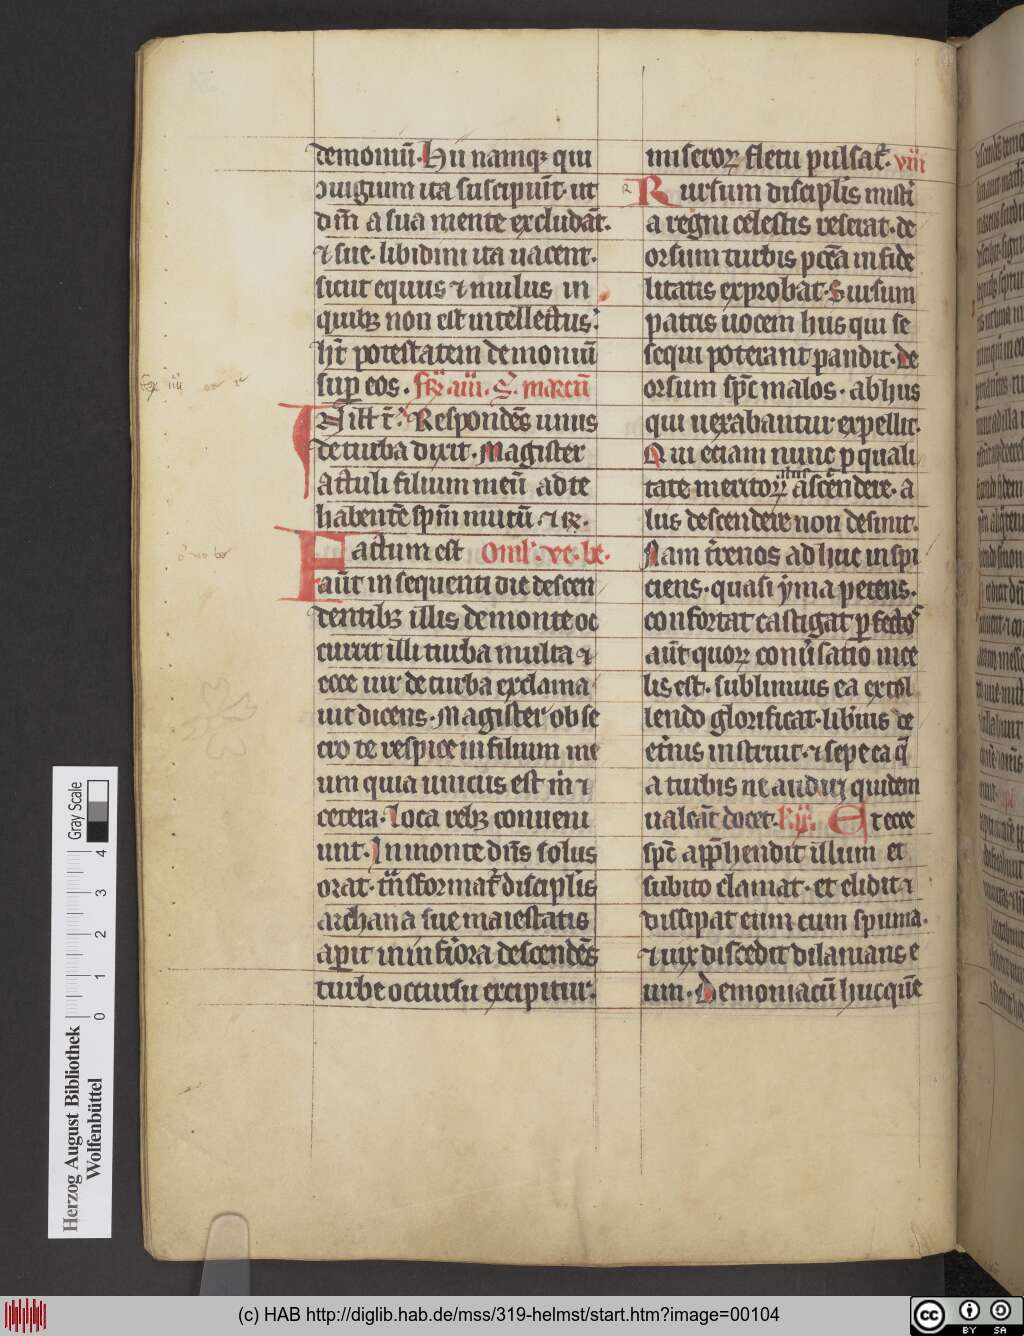 demoniū. Hii namqꝫ qui
ꝯiugium ita suscipiūt· ut
dn̄m a sua mente excludāt·
⁊ sue· libidini ita uacent·
sicut equus ⁊ mulus in
quibꝫ non est intellectus·
hꝫ potestatem demoniū
suꝑ eos· fr̄. iiii. S. marcū
In ill t̄. Respondēs unus
de turba dixit· Magister
attuli filium meū ad te
habentē spm̄ mutū ⁊ r̄.
Factum est Oml. ve. be.
aūt in sequenti die descen
dentibꝫ illis de monte oc
currit illi turba multa ⁊
ecce uir de turba exclama
uit dicens· Magister obse
cro te respice in filium me
um quia unicus est m̄ ⁊
cetera· Loca rebꝫ conueni
unt· In monte dn̄s solus
orat· tn̄sformat̄ discipl̄is
archana sue maiestatis
aꝑit in inferiora descendēs
turbe occursu excipitur·
miseroꝝ fletu pulsat̄· viii
Rursum discipl̄is mist̄i
a regni celestis reserat· de
orsum turbis ꝑcc̄a infide
litatis exprobat· Sursum
patris uocem hus qui se
sequi poterant pandit· De
orsum sp̄c malos· ab hus
qui uexabantur expellit·
Qui etiam nunc ꝓ quali
tate meritoꝝ aliis ascendere· a
lus descendere non desinit·
Nam t̄renos adhuc inspi
ciens· quasi yma petens·
confortat castigat ꝑfectos
aūt quoꝝ conūsatio in ce
lis est· sublimius ea extol
lendo glorificat· lib̄ius de
et̄nis instruit· ⁊ sepe ea q̄
a turbis ne audiri quidem
ualeāt docet· R̄ii. Et ecce
sp̄c app̄hendit illum et
subito clamat· et elidit ⁊
dissipat eum cum spuma·
⁊ uix discedit dilanians e
um· Demoniacū hucq̄ue
0 1 2 3 4
Gray Scale
Herzog August Bibliothek
Wolfenbüttel
(c) HAB http://diglib.hab.de/mss/319-helmst/start.htm?image=00104
cc BY SA